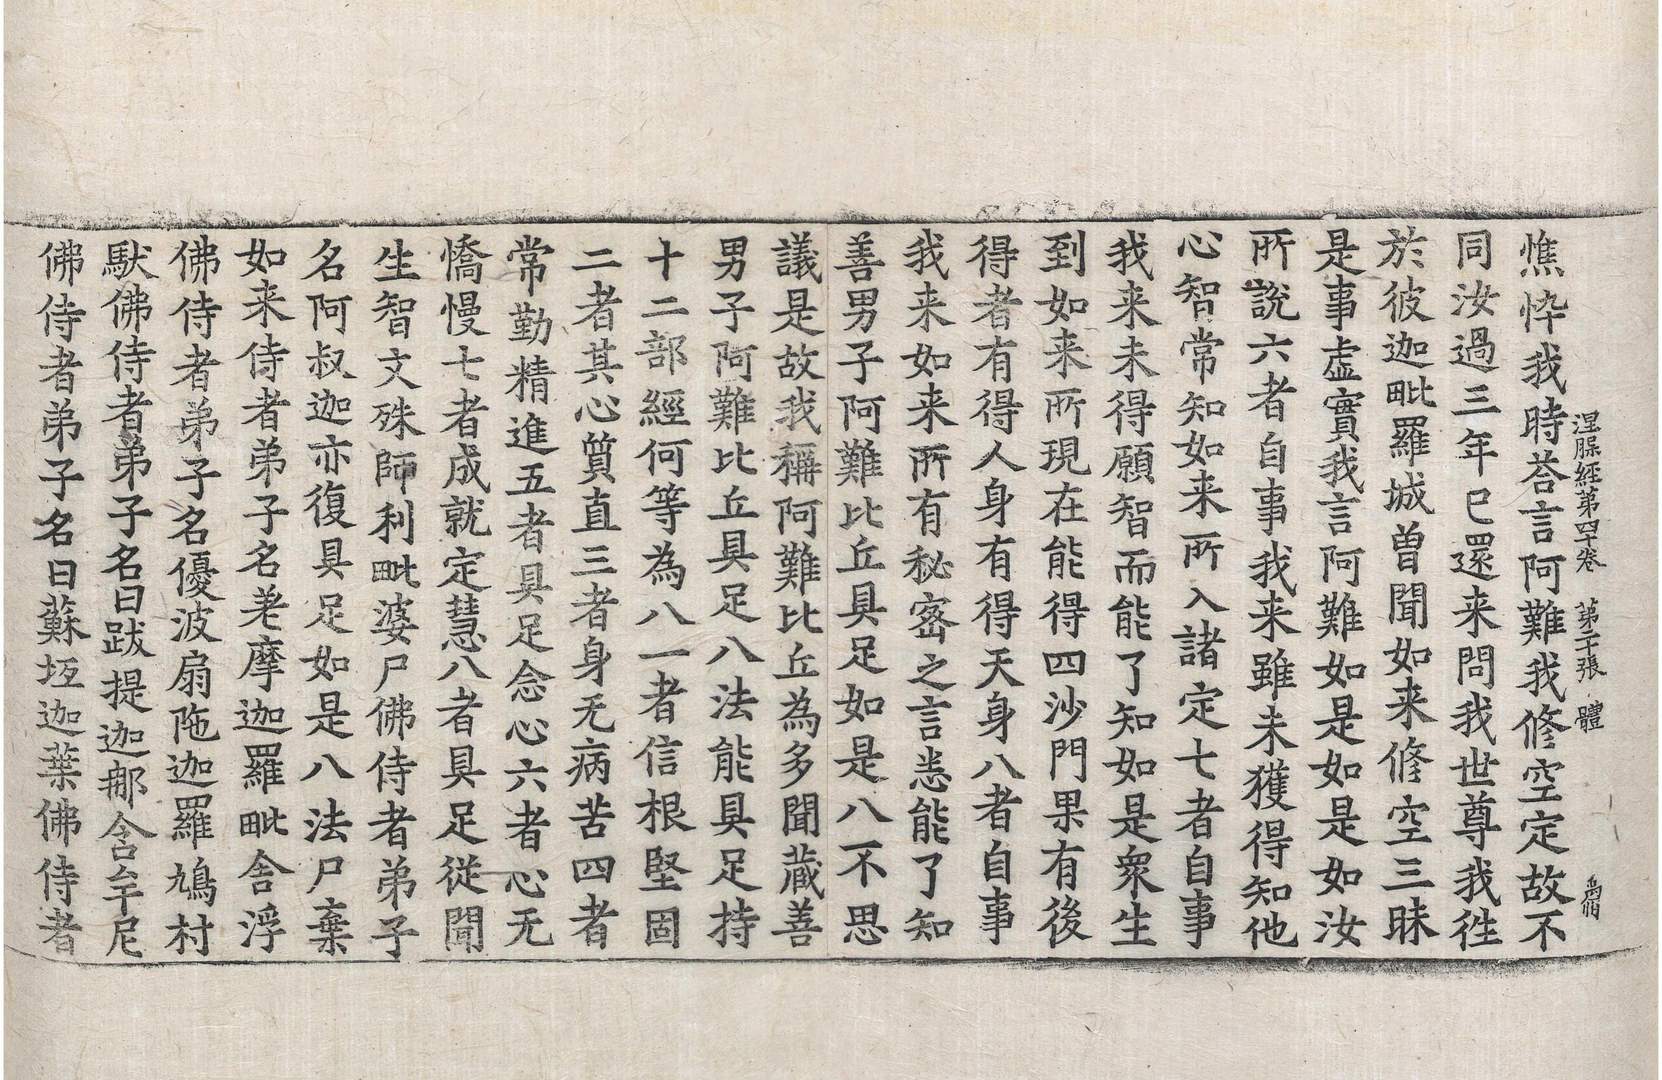 涅槃經第四十卷 第二十張 體
憔悴我時荅言阿難我修空定故不
同汝過三年已還来問我世尊我徃
於彼迦毗羅城曾聞如来修空三昧
是事虛實我言阿難如是如是如汝
所說六者自事我来雖未獲得知他
心智常知如来所入諸定七者自事
我来未得願智而能了知如是衆生
到如来所現在能得四沙門果有後
得者有得人身有得天身八者自事
我来如来所有秘密之言悉能了知
善男子阿難比丘具足如是八不思
議是故我稱阿難比丘為多聞藏善
男子阿難比丘具足八法能具足持
十二部經何等為八一者信根堅固
二者其心質直三者身无病苦四者
常勤精進五者具足念心六者心无
憍慢七者成就定慧八者具足從聞
生智文殊師利毗婆尸佛侍者弟子
名阿叔迦亦復具足如是八法尸棄
如来侍者弟子名差摩迦羅毗舍浮
佛侍者弟子名優波扇陁迦羅鳩村
馱佛侍者弟子名曰跋提迦那含牟尼
佛侍者弟子名曰蘇坻迦葉佛侍者